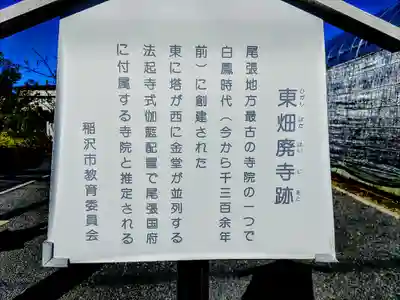 東畑廃寺跡
ひがし ばた はい じ あと
尾張地方最古の寺院の一つで
白鳳時代（今から千三百余年
前）に創建された
東に塔が西に金堂が並列する
法起寺式伽藍配置で尾張国府
に付属する寺院と推定される
稲沢市教育委員会